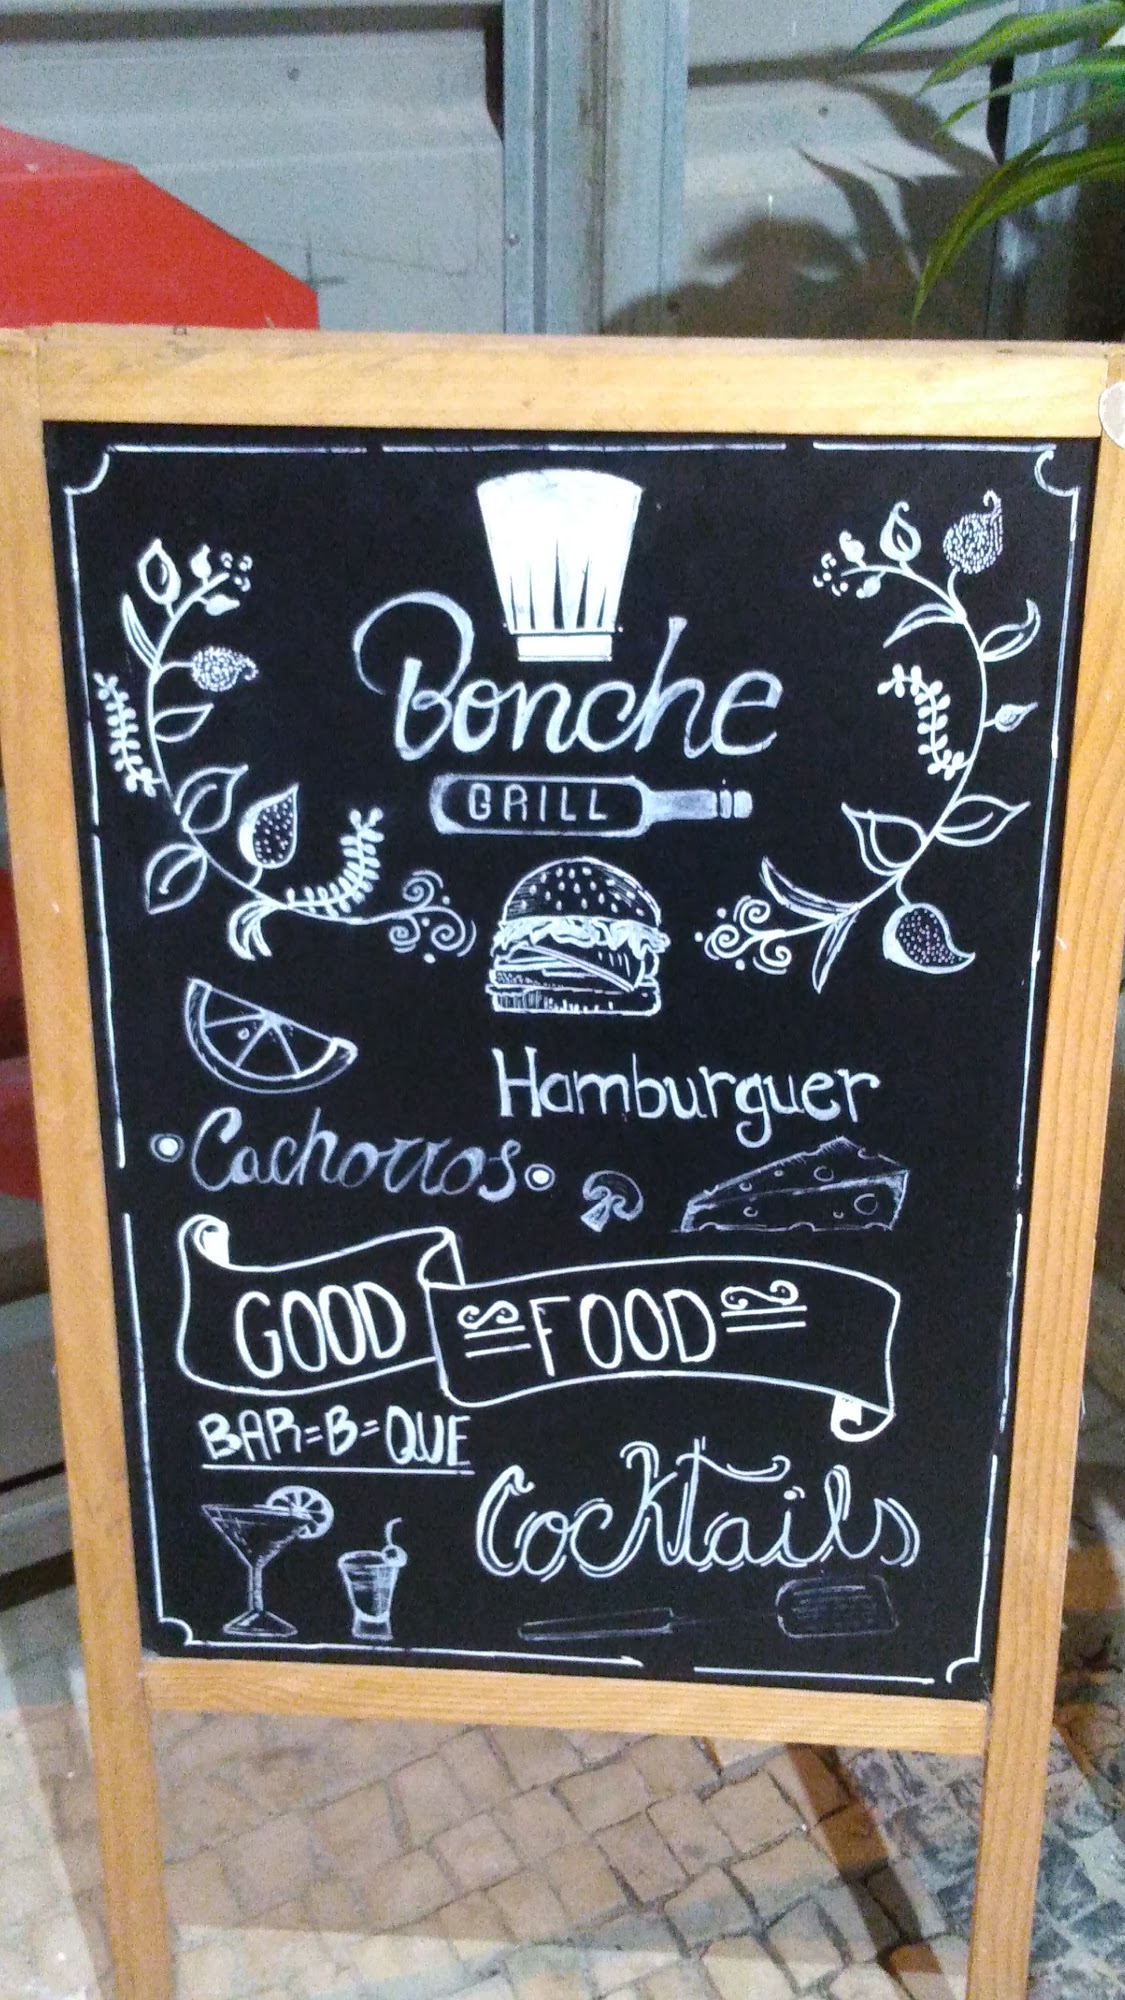 Bonche
GRILL
Hamburguer
Cachorros
GOOD FOOD
BAR=B=QUE
Cocktails